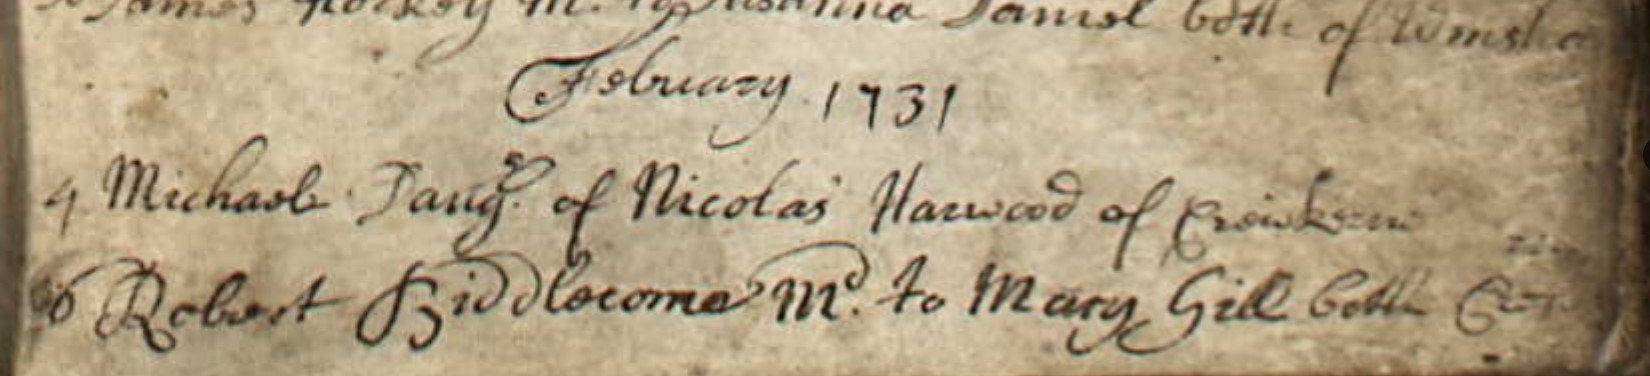 James m. to Susanna Daniel both of Winsha
February 1731
4 Michaele Daugr. of Nicolas Harwood of Crewkern
6 Robert Biddlecome Md. to Mary Gill both